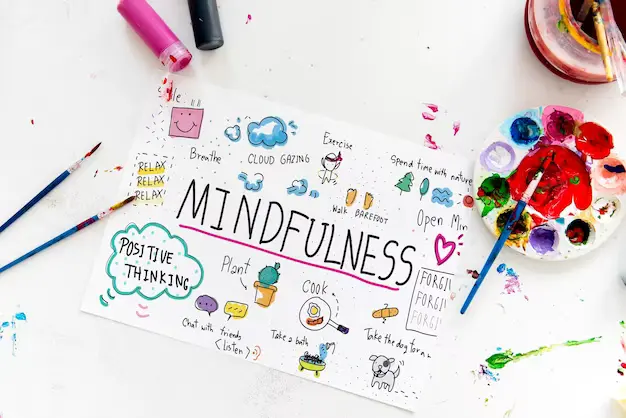 Breathe
CLOUD GAZING
Exercise
Spend time with nature
RELAX
RELAX!
RELAX!
Walk BAREFOOT
Open
MINDFULNESS
POSITIVE
THINKING
Plant
Cook
FORGI
FORGI
FORGI
Chat with friends
<listen>
Take a bath
Take the dog for a